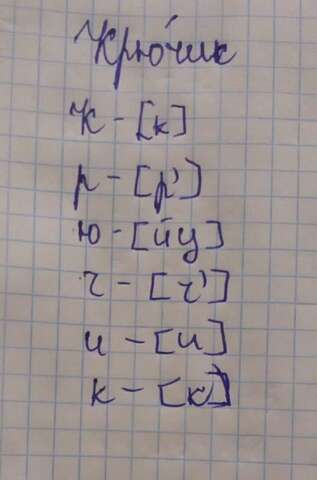 Крю́чик
К - [к]
р - [р']
ю - [йу]
ч - [ч']
и - [и]
к - [к]